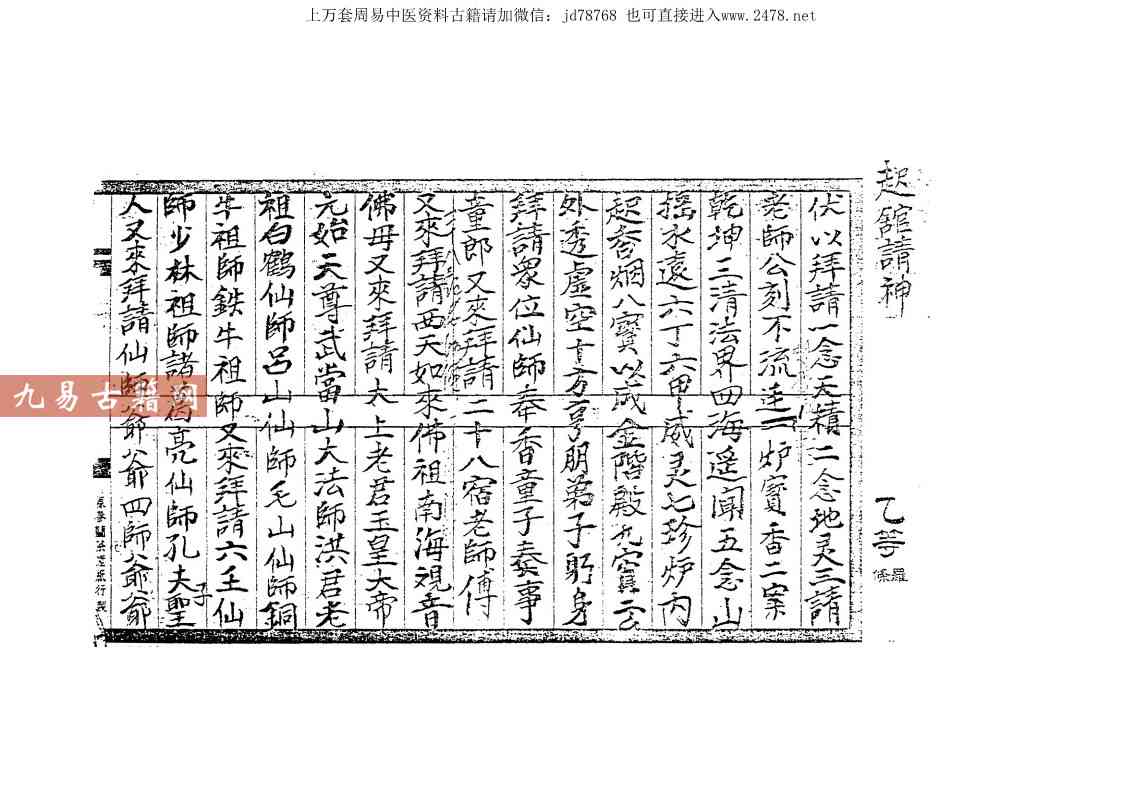 上万套周易中医资料古籍请加微信：jd78768 也可直接进入www.2478.net
起舘請神
乙等
羅
條
伏以拜請一念天積二念地灵三請
老師公刻不流 一炉寶香二案
乾坤三清法界四海遥闻五念山
摇水遠六丁六甲威灵七珍炉内
起香烟八寶以成金階殿九宫
外透虚空十方亨朋弟子躬身
拜請衆位仙師奉香童子奏事
童郎又來拜請二十八宿老師傅
又來拜請西天如來佛祖南海观音
佛母又來拜請太上老君玉皇大帝
元始天尊武當山大法師洪君老
祖白鶴仙師吕山仙師毛山仙師銅
牛祖師鉄牛祖師又來拜請六壬仙
師少林祖師諸葛亮仙師孔夫子聖
人又來拜請仙師爺爺四師爺爺
九易古籍网